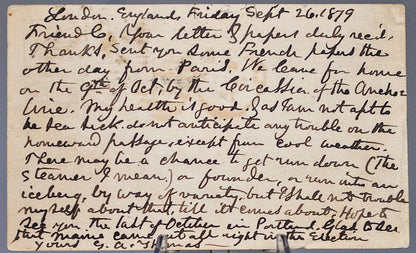 London. England, Friday Sept 26. 1879
Friend C, Your letter & papers duly rec'd.
Thanks, Sent you some French papers the
other day from Paris. We leave for home
on the 9th of Oct. by the Circassia of the Anchor
line. My health is good. & as I am not apt to
be sea sick. do not anticipate any trouble on the
homeward passage, except from cool weather.
There may be a chance to get run down (The
Steamer I mean.) or founder, or run into an
iceberg, by way of variety, but I shall not trouble
myself about that, till it comes about. Hope to
see you the last of October in Portland. Glad to see
that Maine came out all right in the Election
Yours G. A. Thomas